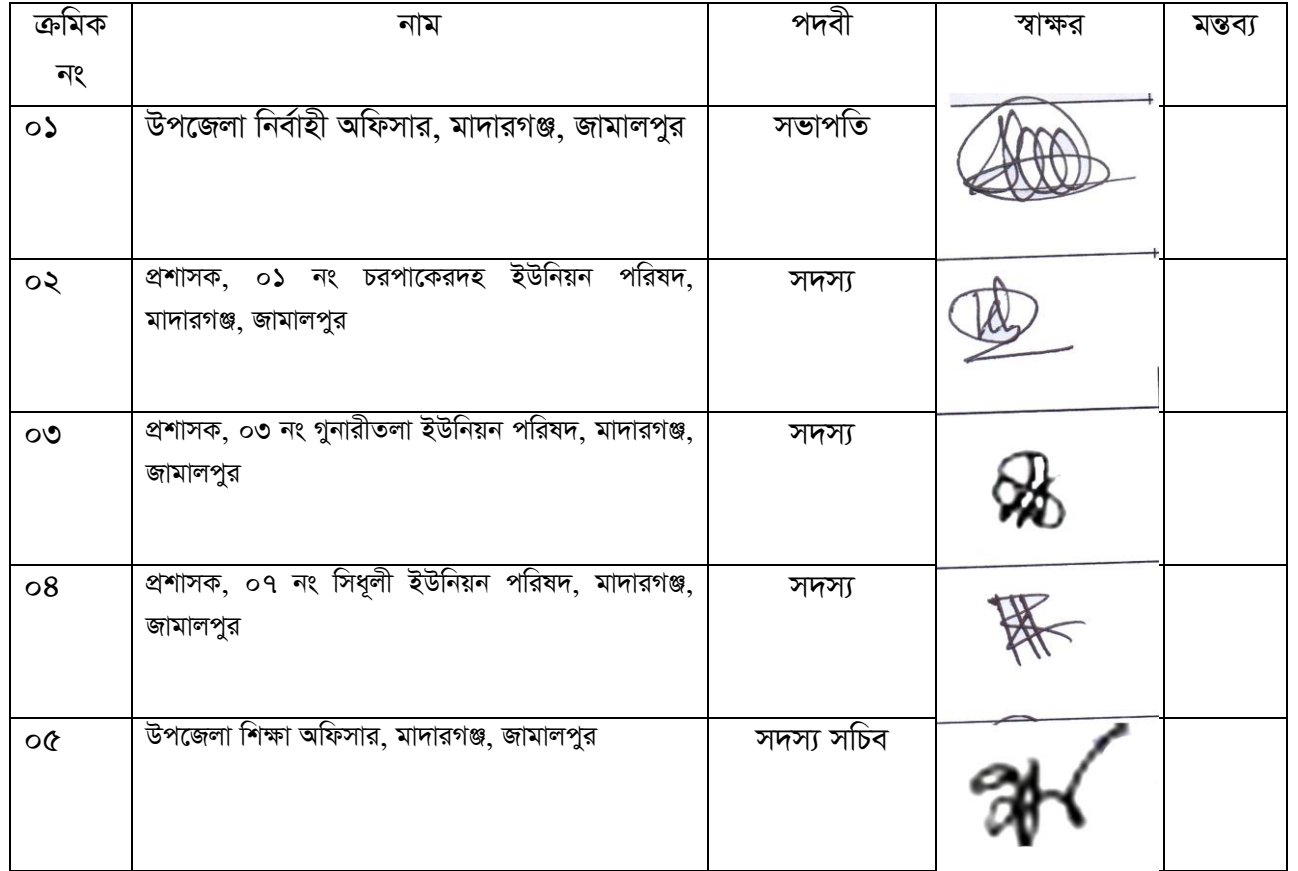 ক্রমিক নং নাম পদবী স্বাক্ষর মন্তব্য
০১ উপজেলা নির্বাহী অফিসার, মাদারগঞ্জ, জামালপুর সভাপতি
০২ প্রশাসক, ০১ নং চরপাকেরদহ ইউনিয়ন পরিষদ, সদস্য
মাদারগঞ্জ, জামালপুর
০৩ প্রশাসক, ০৩ নং গুনারীতলা ইউনিয়ন পরিষদ, মাদারগঞ্জ, সদস্য
জামালপুর
০৪ প্রশাসক, ০৭ নং সিধূলী ইউনিয়ন পরিষদ, মাদারগঞ্জ, সদস্য
জামালপুর
০৫ উপজেলা শিক্ষা অফিসার, মাদারগঞ্জ, জামালপুর সদস্য সচিব